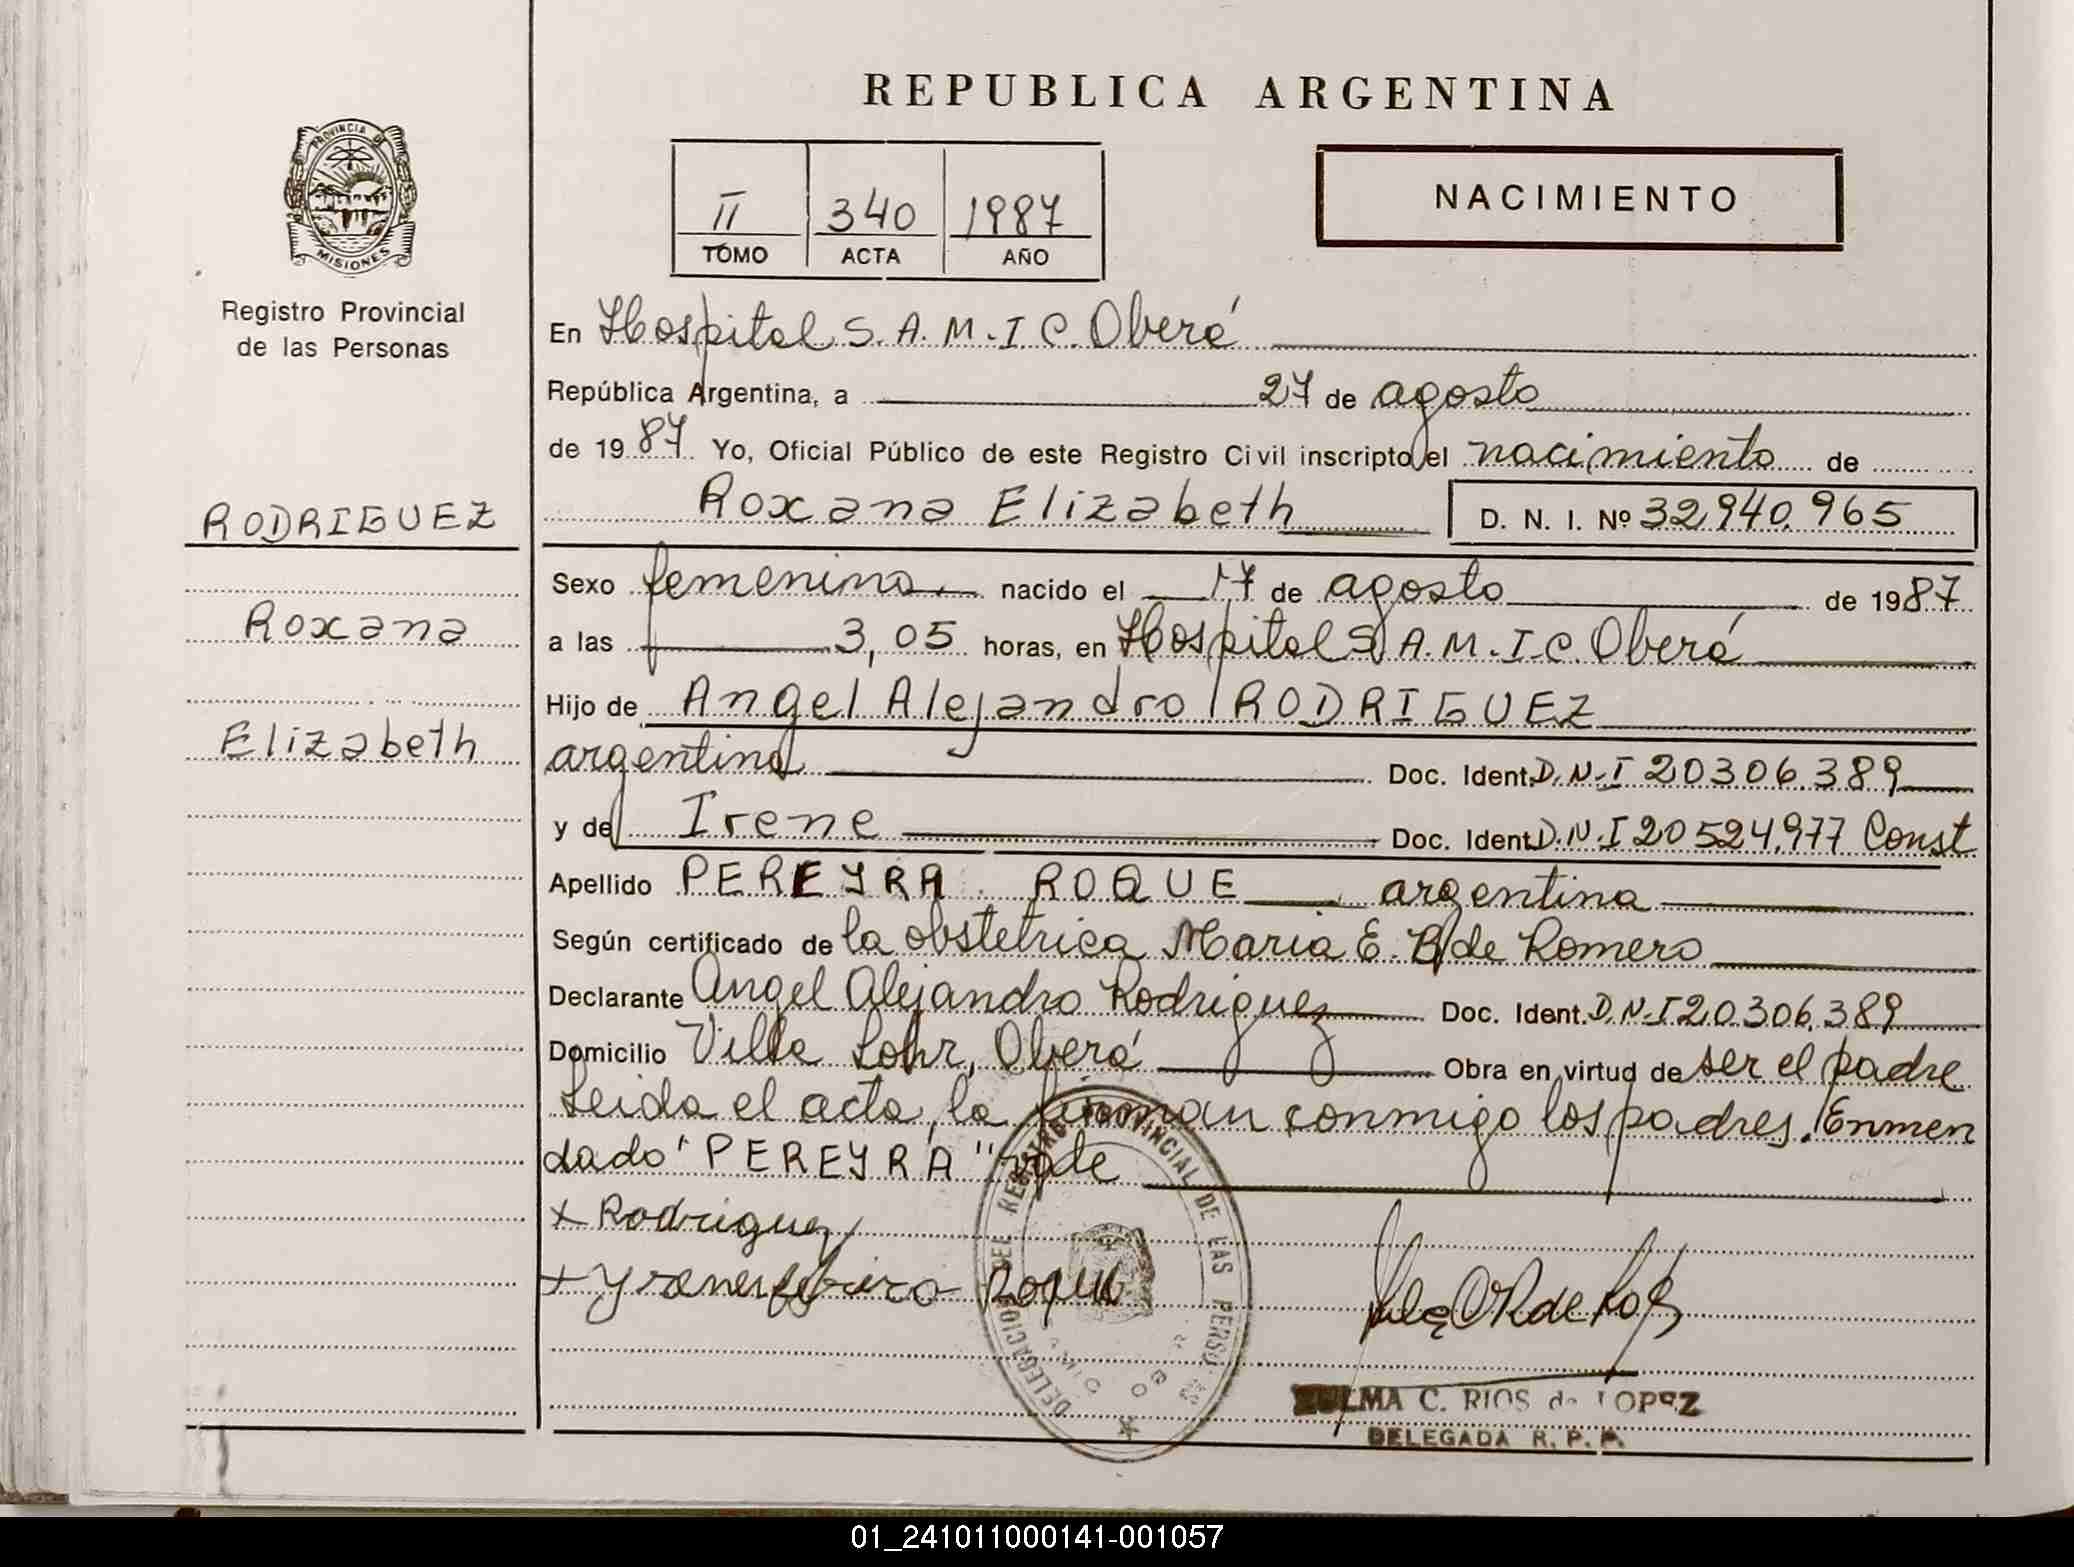 REPUBLICA ARGENTINA
PROVINCIA DE
MISIONES
Registro Provincial
de las Personas
II 340 1987
TOMO ACTA AÑO
NACIMIENTO
RODRIGUEZ
Roxana
Elizabeth
En Hospital S.A.M.I.C. Oberá
República Argentina, a 27 de agosto
de 1987 Yo, Oficial Público de este Registro Civil inscripto el nacimiento de
Roxana Elizabeth D. N. I. Nº 32.940.965
Sexo femenino nacido el 17 de agosto de 1987
a las 3,05 horas, en Hospital S.A.M.I.C. Oberá
Hijo de Angel Alejandro RODRIGUEZ
argentino Doc. Ident. D.N.I 20306.389
y de Irene Doc. Ident. D.N.I 20524.977 Const
Apellido PEREYRA ROQUE argentina
Según certificado de la obstetrica Maria E. B de Romero
Declarante Angel Alejandro Rodriguez Doc. Ident. D.N.I 20.306.389
Domicilio Villa Lohr, Oberá Obra en virtud de ser el padre
Leida el acta, la firman conmigo los padres. Enmen
dado "PEREYRA" vale
x Rodriguez
x Roque
DELEGACION DEL REGISTRO PROVINCIAL DE LAS PERSO
ZULMA C. RIOS de LOPEZ
DELEGADA R. P. P.
01_241011000141-001057